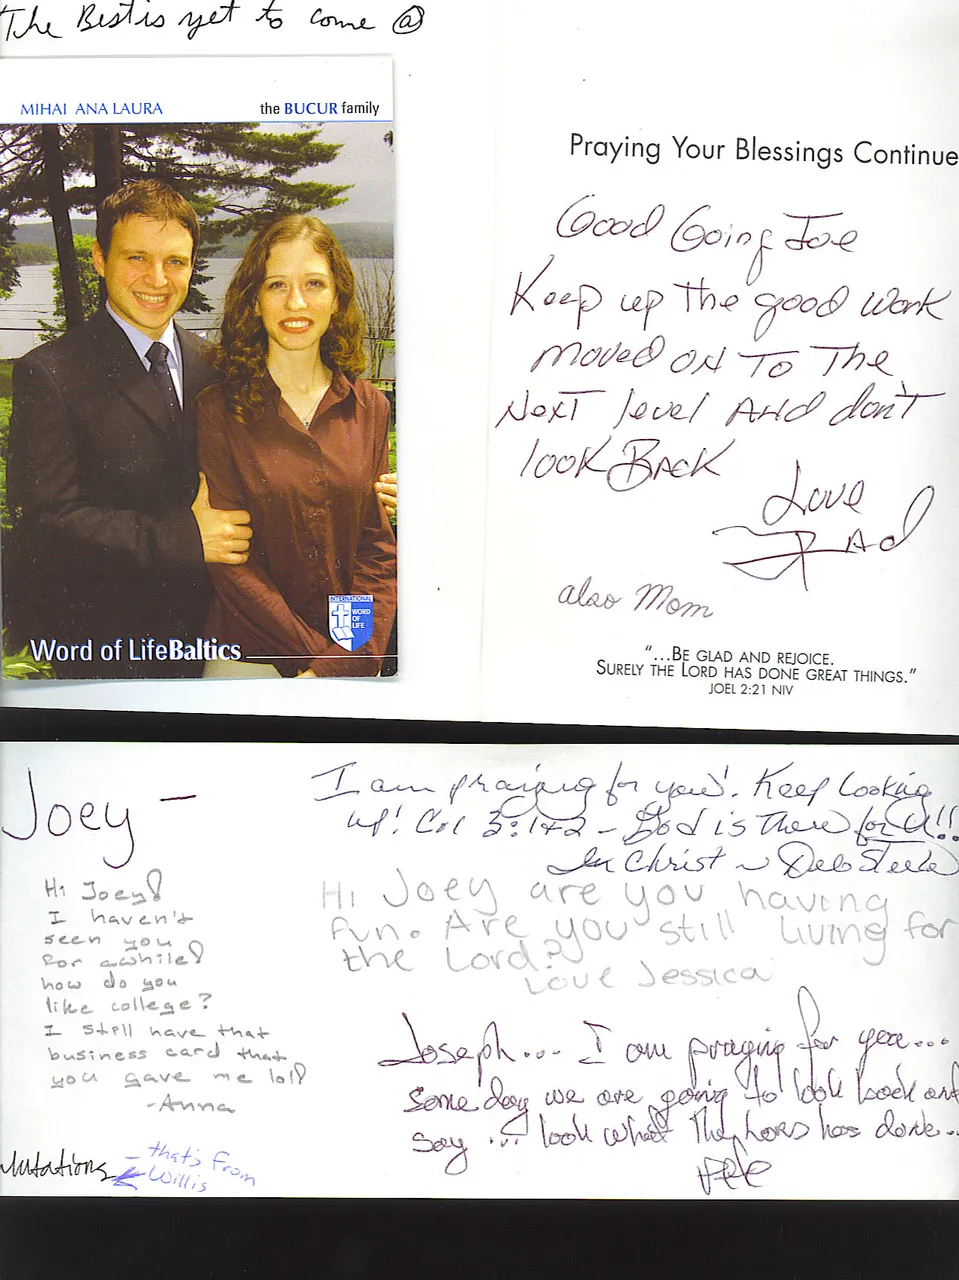 The Best is yet to come @
MIHAI ANA LAURA
the BUCUR family
INTERNATIONAL
WORD
OF
LIFE
Word of LifeBaltics
Praying Your Blessings Continue
Good Going Joe
Keep up the good work
moved on To The
Next level And don't
look Back
Love
Dad
also Mom
“...BE GLAD AND REJOICE.
SURELY THE LORD HAS DONE GREAT THINGS.”
JOEL 2:21 NIV
Joey –
I am praying for you! Keep Looking
up! Col 3:1+2 – God is there for U!!
In Christ ~ Deb Steele
Hi Joey!
I haven't
seen you
for awhile!
how do you
like college?
I still have that
business card that
you gave me lol!
-Anna
Hi Joey are you having
fun. Are you still living for
the Lord?
Love Jessica
Joseph... I am praying for you...
some day we are going to look back and
say ... look what the Lord has done..
Pete
lutations
– that's from
Willis